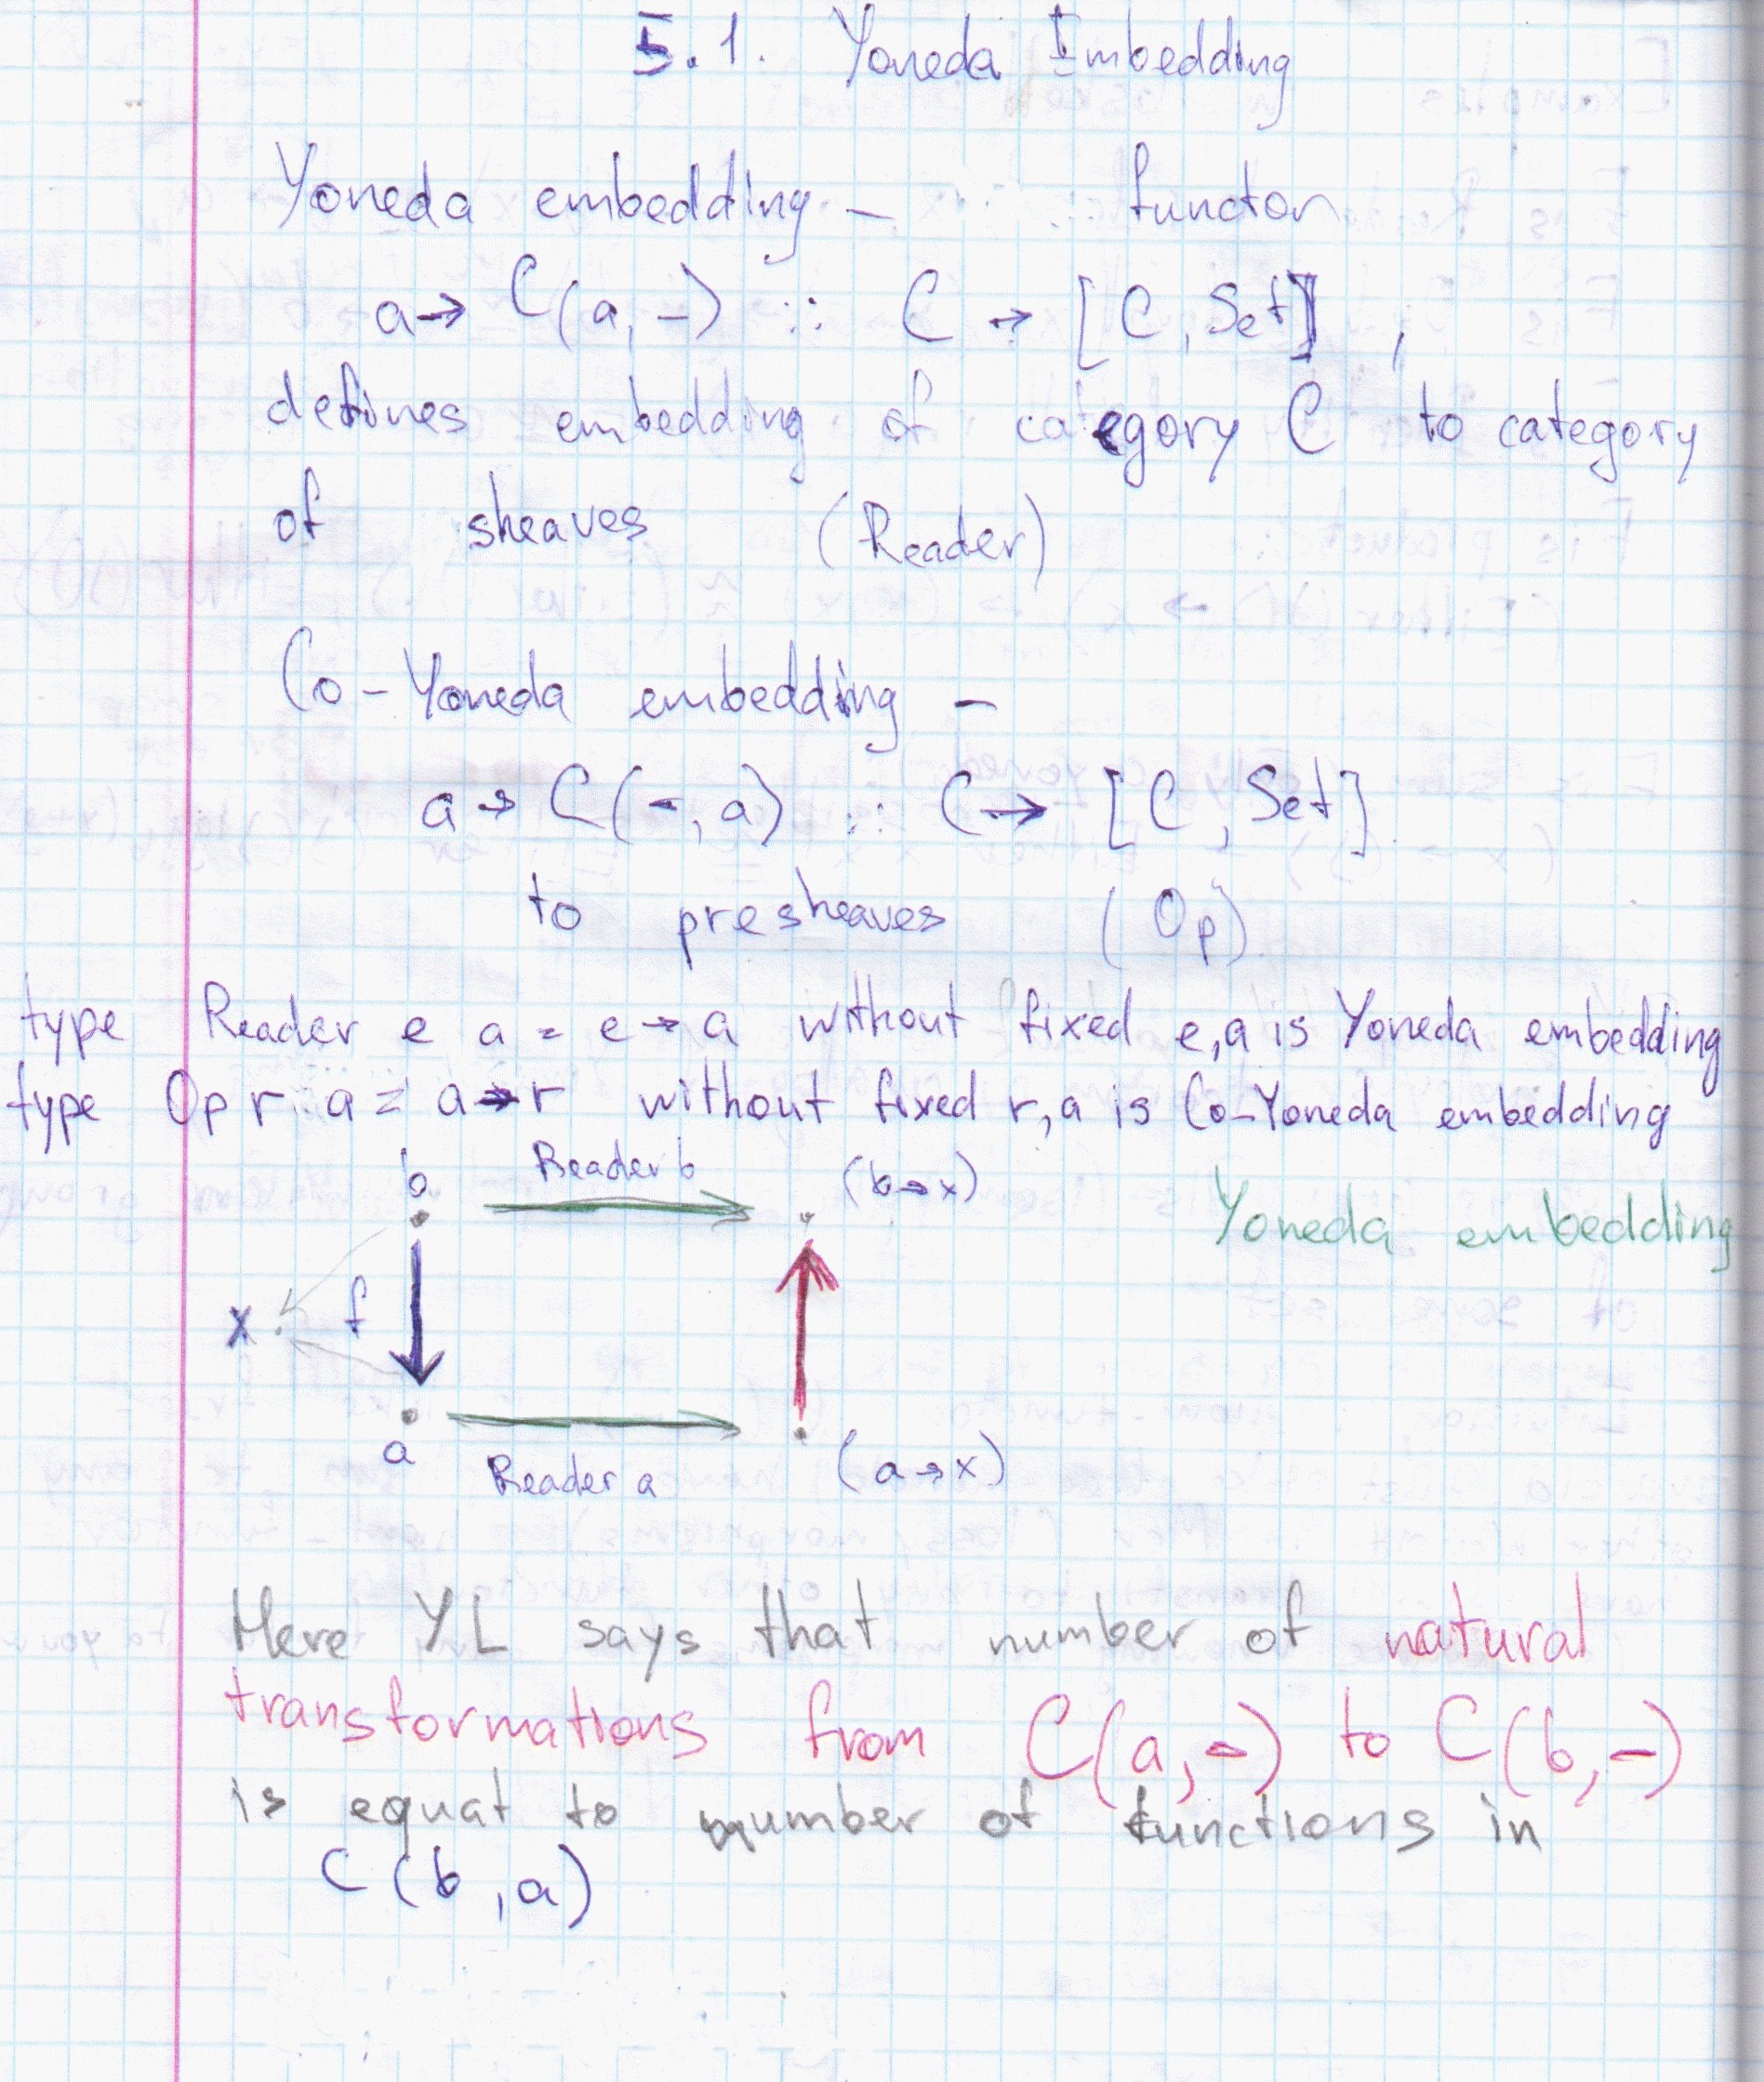 5.1. Yoneda Embedding
Yoneda embedding – functor
a → C(a, –) :: C → [C, Set] ,
defines embedding of category C to category
of sheaves (Reader)
Co-Yoneda embedding –
a → C(-, a) :: C → [C, Set]
to presheaves (Op)
type Reader e a = e → a without fixed e,a is Yoneda embedding
type Op r a = a → r without fixed r,a is Co-Yoneda embedding
b Reader b (b→x)
Yoneda embedding
x f
a Reader a (a→x)
Here YL says that number of natural
transformations from C(a,-) to C(b,-)
is equat to number of functions in
C(b,a)